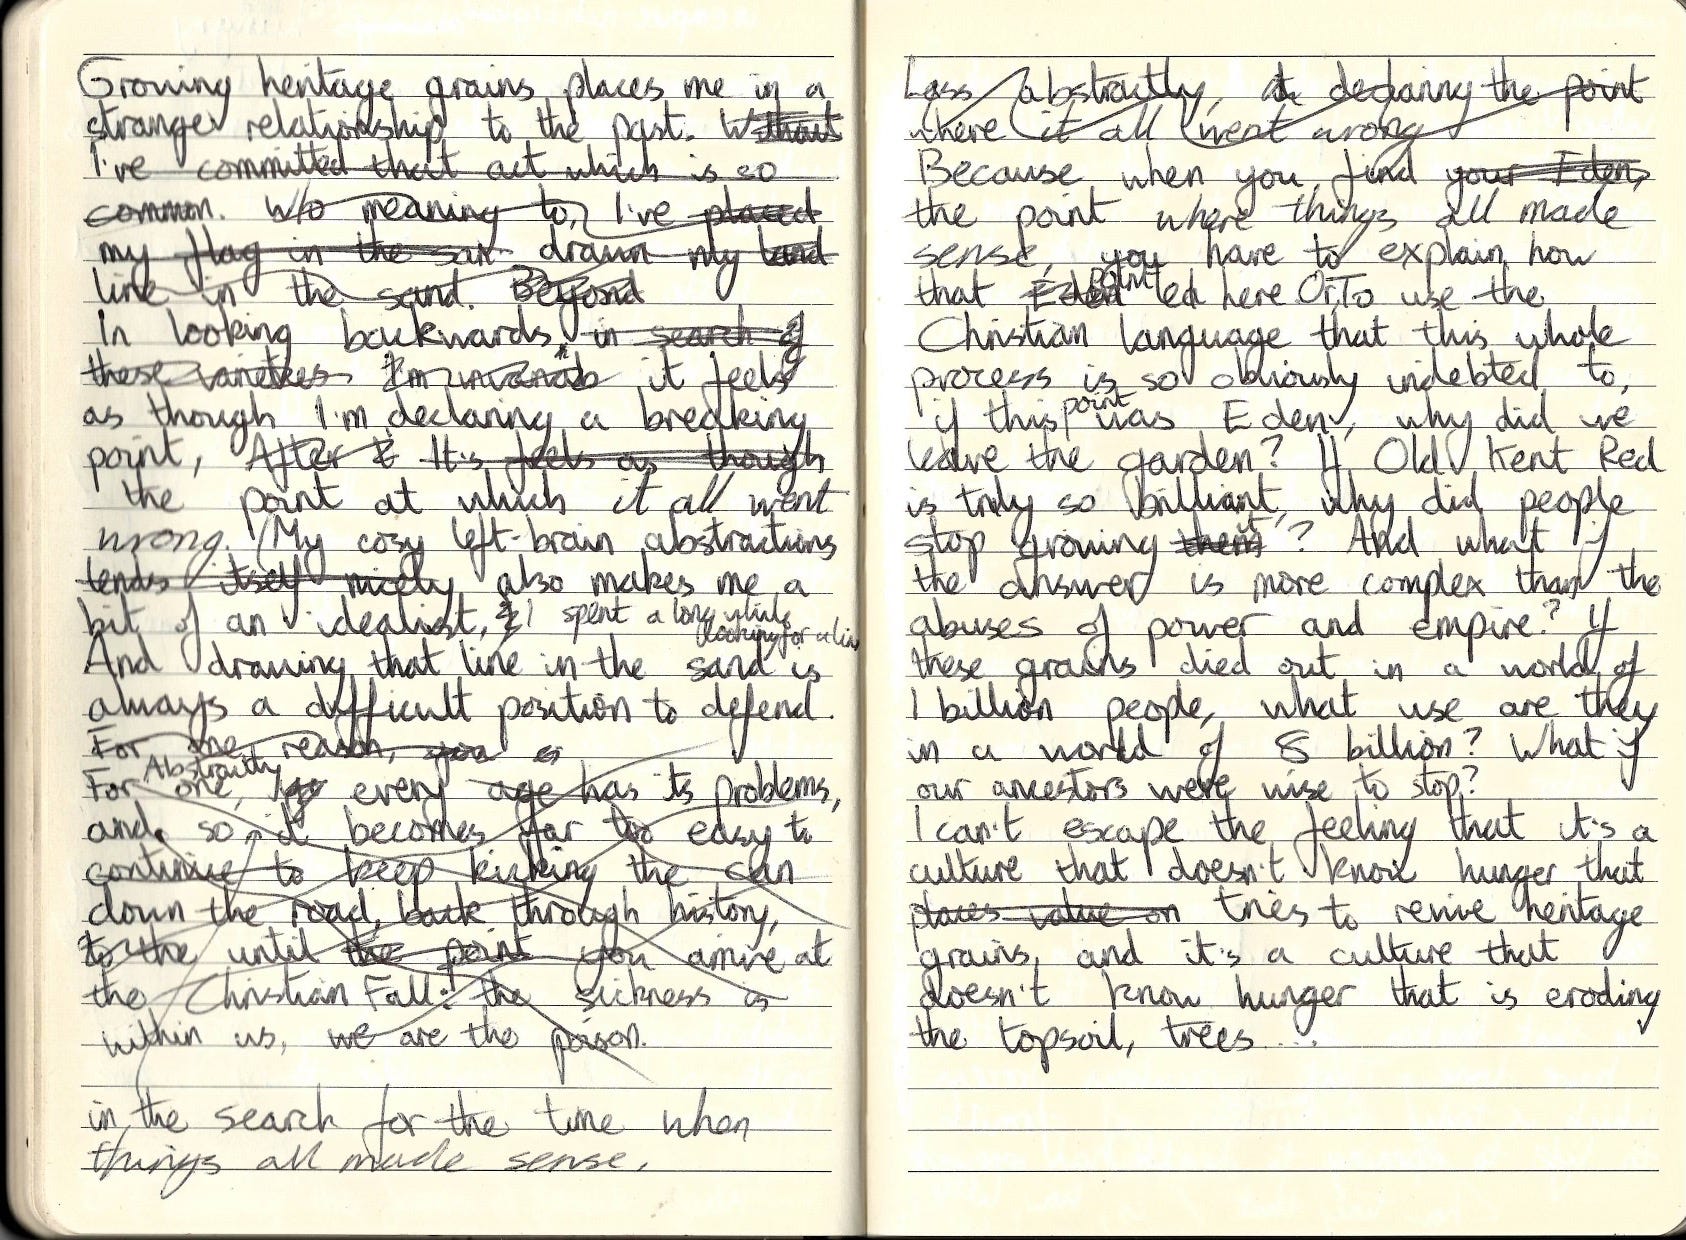 Growing heritage grains places me in a
strange relationship to the past. Without
I've committed that act which is so
common. W/o meaning to, I've placed
my flag in the san drawn my land
line in the sand. Beyond
In looking backwards, in search of
these varieties I'm it feels
as though I'm declaring a breaking
point, After It's feels as though
the point at which it all went
wrong. (My cosy left-brain abstractions
tends itself nicely also makes me a
bit of an idealist, & I spent a long while
looking for a line
And drawing that line in the sand is
always a difficult position to defend.
For one reason, you
Abstractly
For one, every age has its problems,
and so it becomes far too easy to
continue to keep kicking the can
down the road, back through history,
to the until the point you arrive at
the Christian Fall: the sickness is
within us, we are the poison.
in the search for the time when
things all made sense.
Less abstractly, declaring the point
where it all went wrong
Because when you find your Eden,
the point where things all made
sense, you have to explain how
point
that Eden led here Or, To use the
Christian language that this whole
process is so obviously indebted to,
point
if this was Eden, why did we
leave the garden? If Old Kent Red
is truly so brilliant, why did people
it
stop growing them? And what if
the answer is more complex than the
abuses of power and empire? If
these grains died out in a world of
1 billion people, what use are they
in a world of 8 billion? What if
our ancestors were wise to stop?
I can't escape the feeling that it's a
culture that doesn't know hunger that
places value on tries to revive heritage
grains, and it's a culture that
doesn't know hunger that is eroding
the topsoil, trees ....